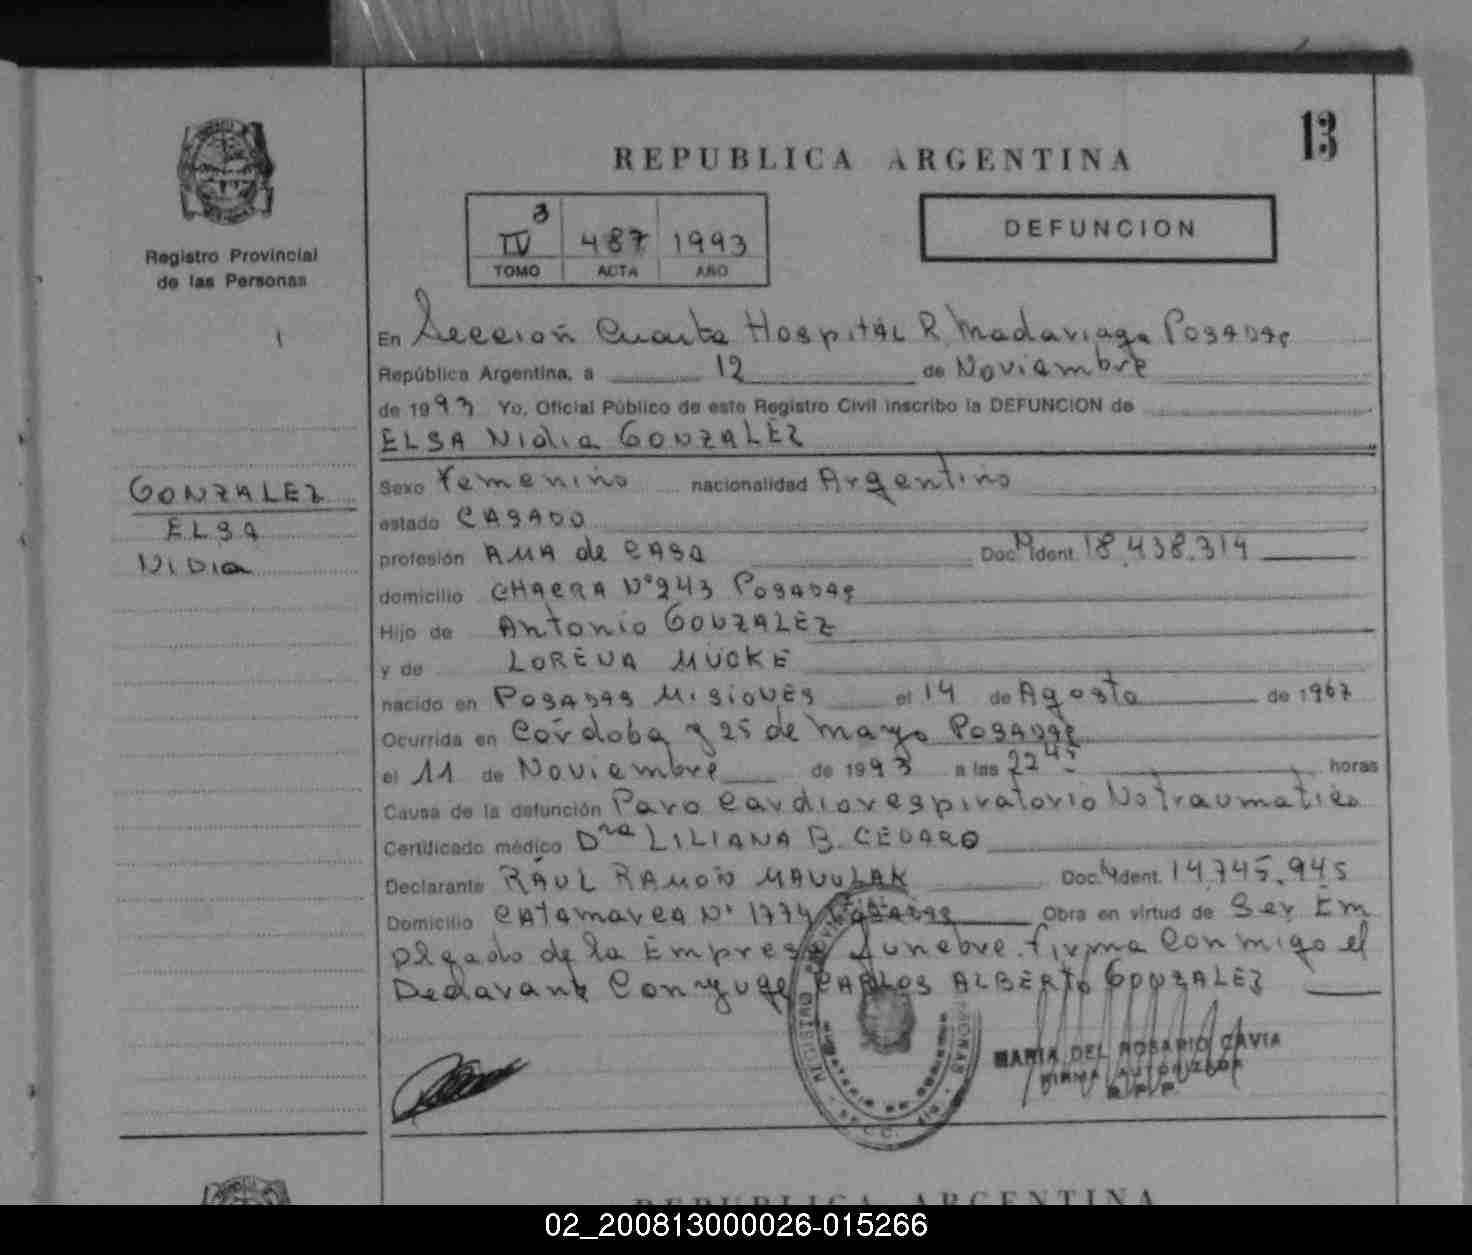 13
REPUBLICA ARGENTINA
DEFUNCION
IV 3 487 1993
TOMO ACTA AÑO
Registro Provincial
de las Personas
GONZALEZ
ELSA
NIDIA
En Sección Cuarta Hospital R. Madariaga Posadas
República Argentina, a 12 de Noviembre
de 1993 Yo, Oficial Público de este Registro Civil inscribo la DEFUNCION de
ELSA Nidia GONZALEZ
Sexo Femenino nacionalidad Argentino
estado CASADO
profesión AMA de CASA Doc. N Ident. 18.438.314
domicilio CHACRA Nº 243 POSADAS
Hijo de Antonio GONZALEZ
y de LORENA MUCKE
nacido en POSADAS MISIONES el 14 de Agosto de 1967
Ocurrida en Córdoba y 25 de mayo POSADAS
el 11 de Noviembre de 1993 a las 22 45 horas
Causa de la defunción Paro Cardiorespiratorio No traumatico
Certificado médico Dra LILIANA B. CEDARO
Declarante RAUL RAMON Doc. N Ident. 14.745.945
Domicilio CATAMARCA Nº 1774 POSADAS Obra en virtud de Ser Em
pleado de la Empresa funebre. firma Conmigo el
Declarante Conyuge CARLOS ALBERTO GONZALEZ
MARIA DEL ROSARIO CAVIA
FIRMA AUTORIZADA
R.P.P.
REPUBLICA ARGENTINA
02_200813000026-015266